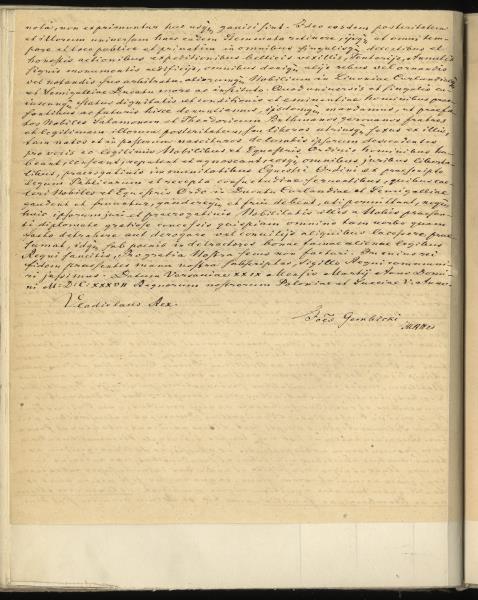 nota, non exprimuntur hic usq; gavisi sunt. Ideo eosdem posteritatem
et illorum universam haec eadem Stemmata retinere, ijsq; et omni tem-
pore et loco publice et privatim in omnibus singulisq; decentibus et
honestis actionibus et expeditionibus bellicis vexillis, Tentorijs, Annulis
signis monumentis aedificijs, omnibus deniq; alijs rebus vel ornandis
vel notandis suo arbitratu, aliorumq; Nobilium in Livoniae Curlandiae
et Semigalliae Ducatu more ac instituto. Quod universis et singulis cu-
iuscunq; status dignitatis et conditionis et eminentiae hominibus prae-
sentibus ac futuris hisce denuntiamus,
dos Nobiles et Theodoricum germanos fratres
et legitimam illorum posteritatem, seu liberos utriusq; sexus ex illis,
tam natos et in posterum nascituros de lumbis ipsorum descendentes
pro veris ac legitimis Nobilibus et Equestris Ordinis hominibus ha-
beant, censeant, reputent et agnoscant, eosq; omnibus juribus liberta-
tibus, praerogativis immunitatibus Equestri Ordini et praescripto
Legum Publicarum et recepta consuetudine servatibus, quibus cae-
teri Nobiles et Equestris Ordo in Ducatu Curlandiae et Semigalliae
gaudent et fruuntur, gaudereq; et frui debent, uti permittant, neq;
huic ipsorum juri et praerogativis Nobilitatis illis a Nobis praesen-
ti diplomate gratiose concessis quispiam omnino tam verbo quam
facto detrahere aut derogare vel convitijs aliquibus lacessere prae-
sumat, idq; sub poenis in detractores bonae famae alienae legibus
Regni sancitis, Pro gratia Nostra secus non facturi. In cuius rei
fidem praesentes manu nostra subscriptas, Sigillo Regni communi-
ri jussimus. Datum Varsaviae XXIX Mensis Martij Anno Domi-
ni M.D.C.XXXVII Regnorum nostrorum Poloniae et Sueciae V. Anno.
Vladislaus Rex.
Gembicki